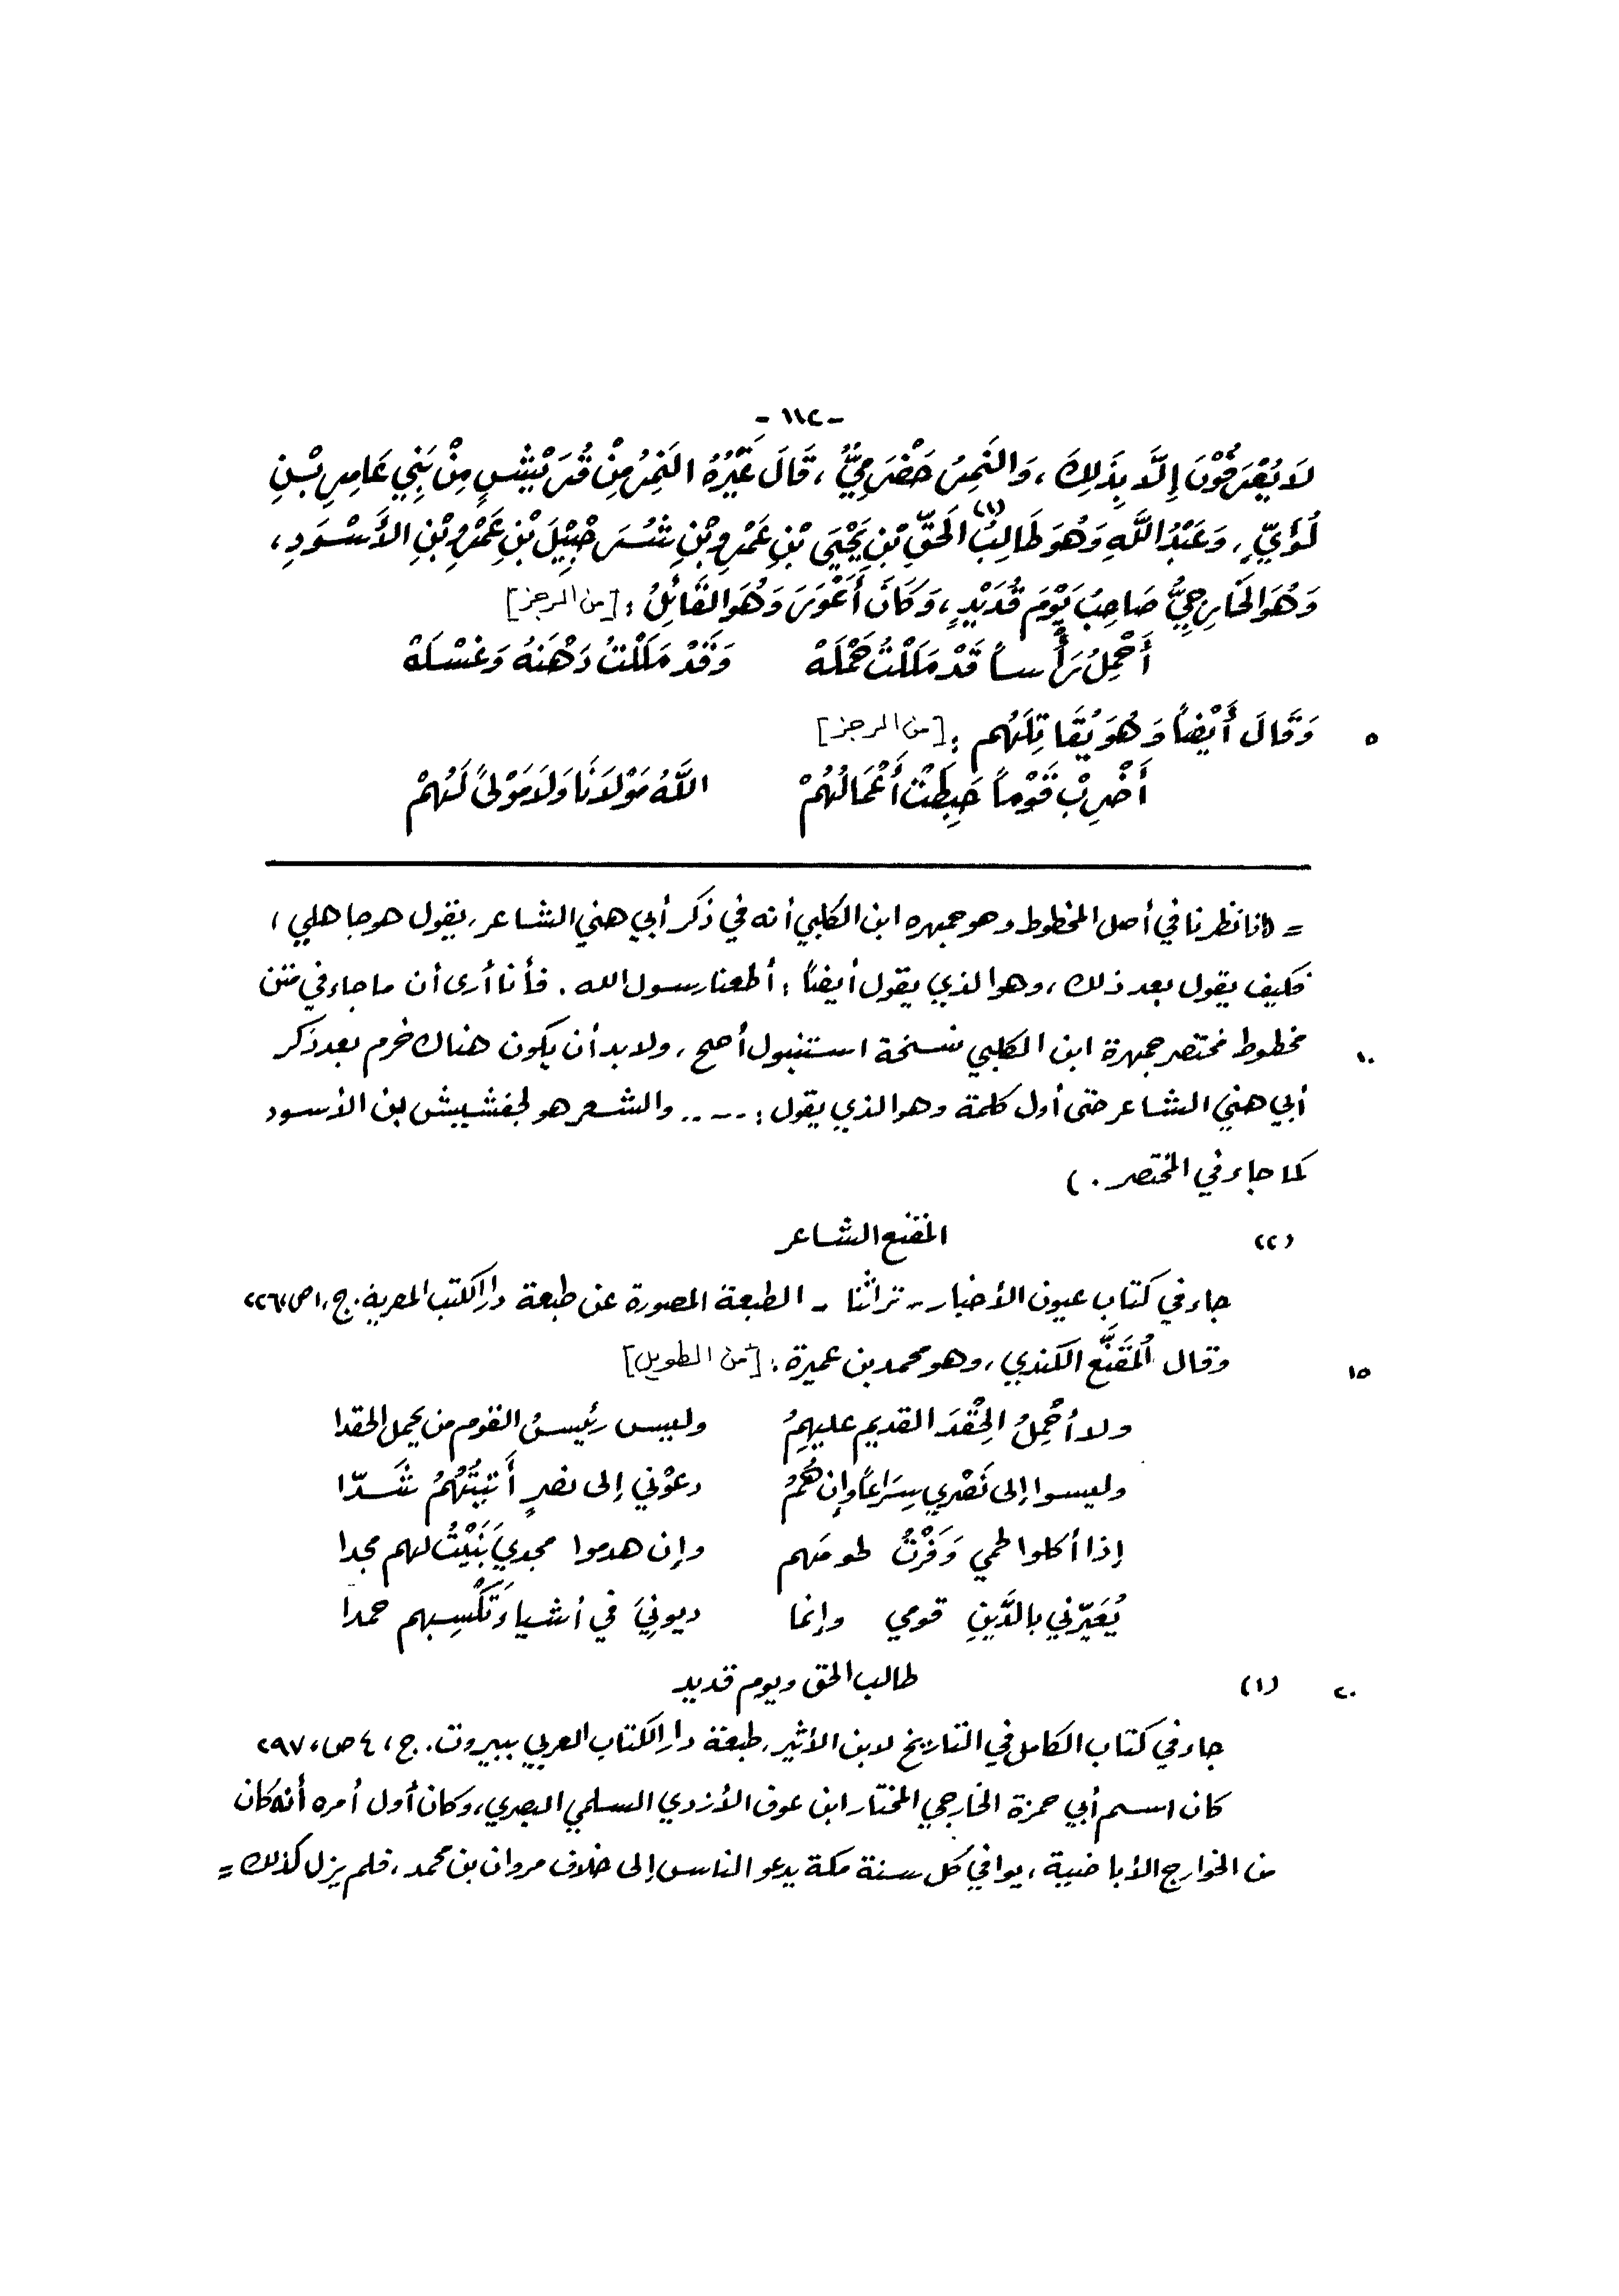 - ١١٢ -
لَا يُعْرَفُوْنَ إِلَّا بِذَلِكَ ، وَالنَّمِرُ حَضْرَمِيٌّ ، قَالَ غَيْرُهُ النَّمِرُ مِنْ قُرَيْشٍ مِنْ بَنِي عَامِرِ بْنِ
لُؤَيٍّ ، وَعَبْدُ اللَّهِ وَهُوَ طَالِبُ (١) الحَقِّ بْنِ يَحْيَى بْنِ عَمْرِو بْنِ شُرَحْبِيْلَ بْنِ عَمْرِو بْنِ الأَسْوَدِ ،
وَهُوَ الخَارِجِيُّ صَاحِبُ يَوْمَ قُدَيْدٍ ، وَكَانَ أَعْوَرَ وَهُوَ القَائِلُ : [من الرجز]
أَحْمِلُ رَأْساً قَدْ مَلَلْتُ حَمْلَهْ وَقَدْ مَلَلْتُ دَهْنَهُ وَغَسْلَهْ
٥ وَقَالَ أَيْضاً وَهُوَ يُقَاتِلَهُم : [من الرجز]
أَضْرِبْ قَوْماً حَبِطَتْ أَعْمَالُهُمْ اللَّهُ مَوْلَانَا وَلَا مَوْلَىً لَهُمْ
= لأننا نظرنا في أصل المخطوط وهو جمهره ابن الكلبي أنه في ذكر أبي هني الشاعر ، يقول هو جاهلي ،
فكيف يقول بعد ذلك ، وهو الذي يقول أيضاً : أطعنا رسول الله . فأنا أرى أن ما جاء في متن
١٠ مخطوط مختصر جمهرة ابن الكلبي نسخة استنبول أصح ، ولا بد أن يكون هناك خرم بعد ذكر
أبي هني الشاعر حتى أول كلمة وهو الذي يقول : ..... والشعر هو لجفشيش بن الأسود
كما جاء في المختصر . )
(٢) المقنع الشاعر
جاء في كتاب عيون الأخبار - تراثنا - الطبعة المصورة عن طبعة دار الكتب المصرية . ج ، ١ ص ، ٢٢٦
١٥ وقال المُقَنَّع الكندي ، وهو محمد بن عميرة : [من الطويل]
ولا أحْمِلُ الحِقْدَ القديم عليهِمُ وليس رئيسُ القوم من يحمل الحقدا
وليسوا إلى نَصْري سِرَاعاً وإن هُمُ دعوْني إلى نصرٍ أَتيتُهُمُ شَدّا
إذا أكلوا لحمي وَفَرْتُ لحومَهم وإن هدموا مجدي بَنَيْتُ لهم مجدا
يُعَيّرني بالدَّينِ قومي وإنما ديونيَ في أشياءَ تَكْسِبهم حمدا
٢٠ (١) طالب الحق ويوم قديد
جاء في كتاب الكامل في التاريخ لابن الأثير ، طبعة دار الكتاب العربي ببيروت . ج ، ٤ ص ، ٢٩٧
كان اسم أبي حمزة الخارجي المختار ابن عوف الأزدي السلمي البصري ، وكان أول أمره أنه كان
من الخوارج الأباضية ، يوافي كل سنة مكة يدعو الناس إلى خلاف مروان بن محمد ، فلم يزل كذلك =